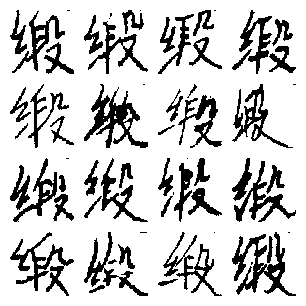 缎缎缎缎
缎缎缎缎
缎缎缎缎
缎缎缎缎